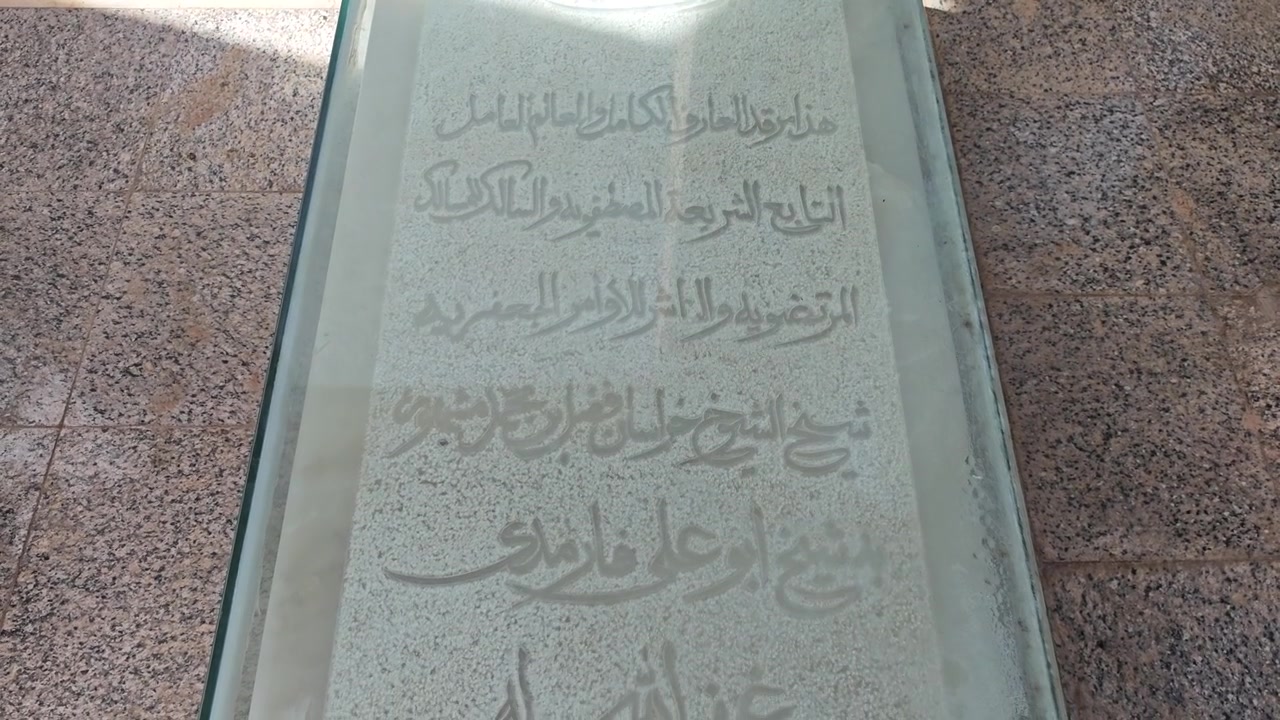 هذا مرقد العارف الکامل والعالم العامل
التابع الشریعة المصطفویه والسالک المسالک
المرتضویه والناشر للاوامر الجعفریه
شیخ الشیوخ خراسان فضل بن محمد مشهور
بشیخ ابو علی فارمدی
غفر الله له